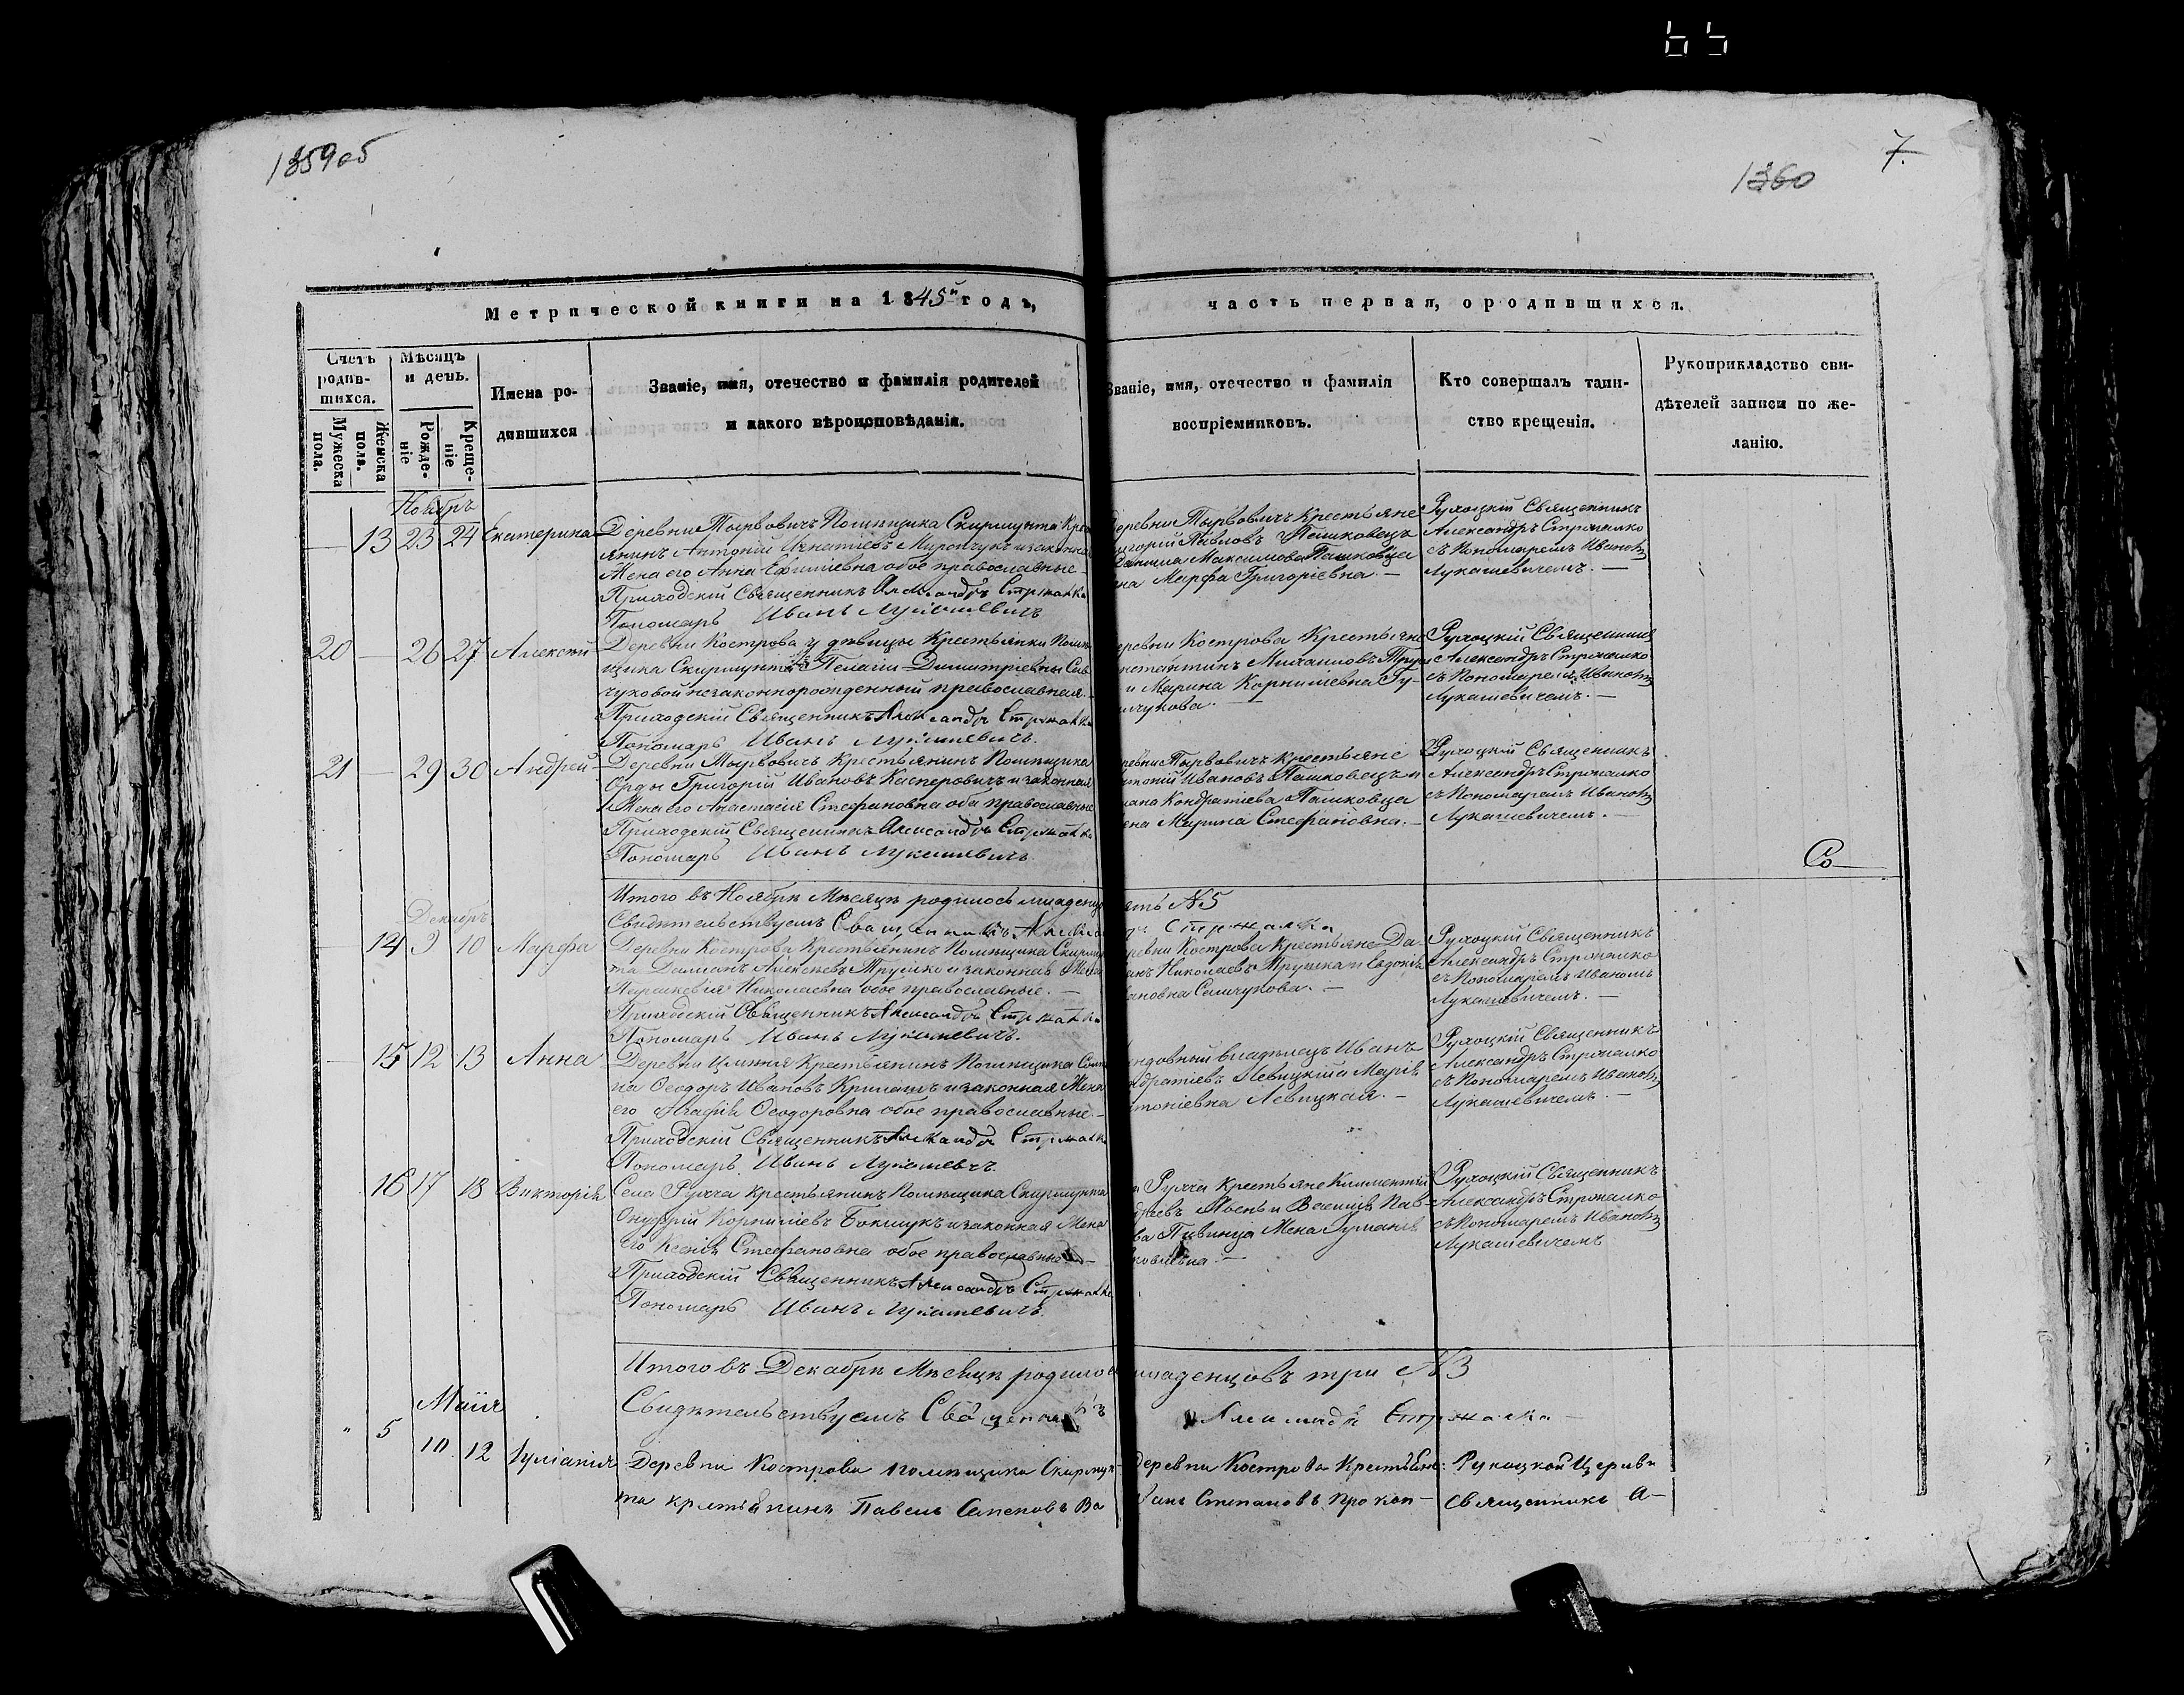 65
1359об
1360
7.
Метрической книги на 1845й годъ,
часть первая, о родившихся.
Счетъ родив-
шихся.
Мужеска пола.
Женска пола.
Мѣсяцъ и день.
Рожде-
ніе
Креще-
ніе
Имена ро-
дившихся
Званіе, имя, отечество и фамилія родителей
и какого вѣроисповѣданія.
Званіе, имя, отечество и фамилія
воспріемниковъ.
Кто совершалъ таин-
ство крещенія.
Рукоприкладство сви-
дѣтелей записи по же-
ланію.
Ноябрь
13 23 24 Екатерина
Деревни Тырвовичъ Помѣщика Скирмунта Крес
янинъ Антоній Игнатіевъ Мирончукъ и законна
Жена его Анна Ефиміевна обое православные
Приходскій Священникъ Александръ Стржалко
Пономарь Иванъ Лукашевичъ
Деревни Тырвовичъ Крестьяне
игорій Павловъ Пашковецъ
Максимова Пашковца
на Марфа Григоріевна. —
Рухоцкій Священникъ
Александръ Стржалко
съ Пономаремъ Иваномъ
Лукашевичемъ. —
20 — 26 27 Алексѣй
Деревни Кострова у дѣвицы Крестьянки Помѣ
щика Скирмунта Пелагіи Димитріевны Сав
чуковой незаконнорожденный православная. —
Приходскій Священникъ Александръ Стржалко
Пономарь Иванъ Лукашевичъ.
еревни Кострова Крестьяне
нстантинъ Михаиловъ Труш
и Марина Корниліевна Гу-
чукова. —
Рухоцкій Священникъ
Александръ Стржалко
съ Пономаремъ Иваномъ
Лукашевичемъ. —
21 — 29 30 Андрей
Деревни Тырвовичъ Крестьянинъ Помѣщика
Орды Григорій Ивановъ Касперовичъ и законная
Жена его Анастасія Стефановна оба православные
Приходскій Священникъ Александръ Стржалко
Пономарь Иванъ Лукашевичъ.
ревни Тырвовичъ Крестьяне
нтоній Ивановъ Пашковецъ и
Кондратіева Пашковца
ена Марина Стефановна. —
Рухоцкій Священникъ
Александръ Стржалко
съ Пономаремъ Иваномъ
Лукашевичемъ. —
Со
Итого въ Ноябрѣ Мѣсяцѣ родилось младенцо
ять №5
Свидѣтельствуемъ Священникъ Алекса
Стржалко
Декабрь
14 9 10 Марфа
Деревни Кострова Крестьянинъ Помѣщика Скирмун
та Даміанъ Алексѣевъ Трушко и законная Жена
Параскевія Николаевна обое православные. —
Приходскій Священникъ Александръ Стржалко
Пономарь Иванъ Лукашевичъ.
ревни Кострова Крестьяне Да-
анъ Николаевъ Трушка и Евдокія
ановна Савчукова. —
Рухоцкій Священникъ
Александръ Стржалко
съ Пономаремъ Иваномъ
Лукашевичемъ. —
15 12 13 Анна
Деревни Крестьянинъ Помѣщика
на Ѳеодоръ Ивановъ и законная Жена
его Агафія Ѳеодоровна обое православные. —
Приходскій Священникъ Александръ Стржалко
Пономарь Иванъ Лукашевичъ.
ндовный владѣлецъ Иванъ
ндратіевъ Левицкій и Марія
нтоніевна Левицкая. —
Рухоцкій Священникъ
Александръ Стржалко
съ Пономаремъ Иваномъ
Лукашевичемъ. —
16 17 18 Викторія
Села Рухча Крестьянинъ Помѣщика Скирмунта
Онуфрій Корниліевъ и законная Жена
его Ксенія Стефановна обое православные —
Приходскій Священникъ Александръ Стржалко
Пономарь Иванъ Лукашевичъ.
Рухча Крестьяне Климентій
и Василія Пав-
ва Пивинца Жена Іуліанія
ковлевна. —
Рухоцкій Священникъ
Александръ Стржалко
съ Пономаремъ Иваномъ
Лукашевичемъ
Итого въ Декабрѣ Мѣсяцѣ родилось
младенцовъ три №3
Свидѣтельствуемъ Священникъ
Александръ Стржалко —
Маія
" 5 10 12 Іуліанія
Деревни Кострова помѣщика Скирмун-
та крестьянинъ Павелъ Семеновъ Ва
Деревни Кострова Крестьянъ
Степановъ Прокоп-
Рухоцкой Церкви
священникъ А-